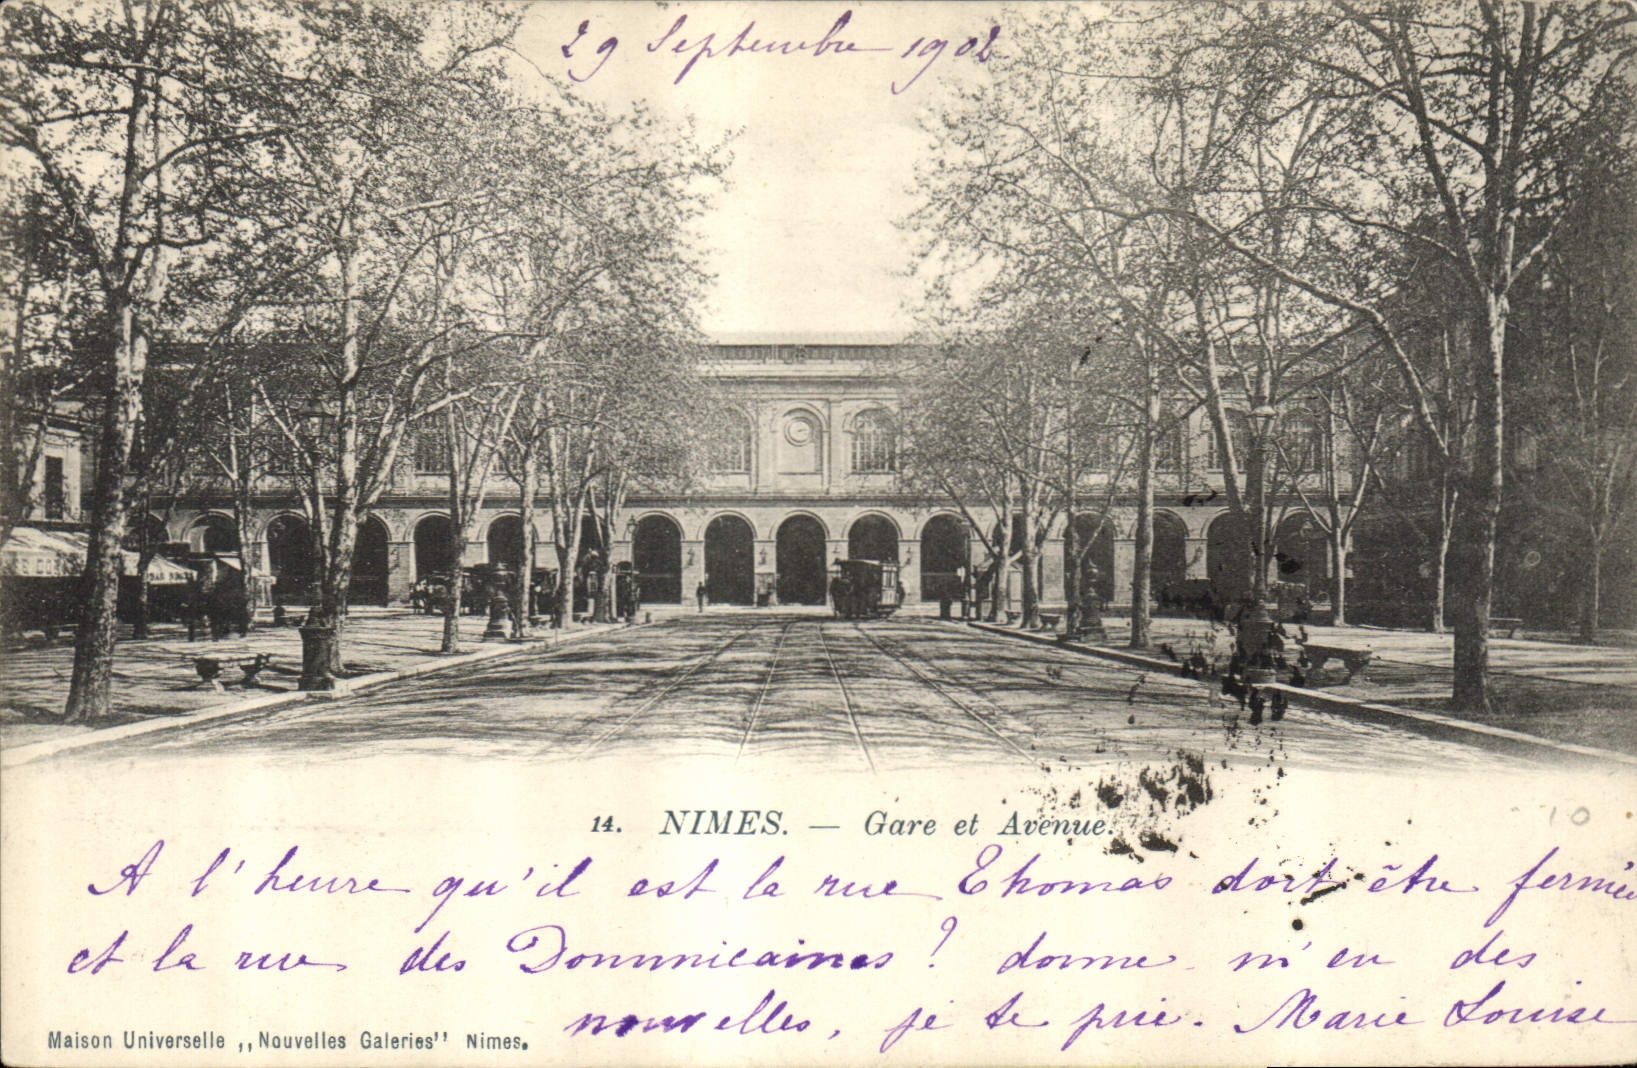 29 Septembre 1902
BAR
14. NIMES. — Gare et Avenue.
A l'heure qu'il est la rue Thomas doit être fermée
et la rue des Dominicaines ? donne m'en des
nouvelles, je te prie. Marie Louise
Maison Universelle ,,Nouvelles Galeries'' Nimes.
10